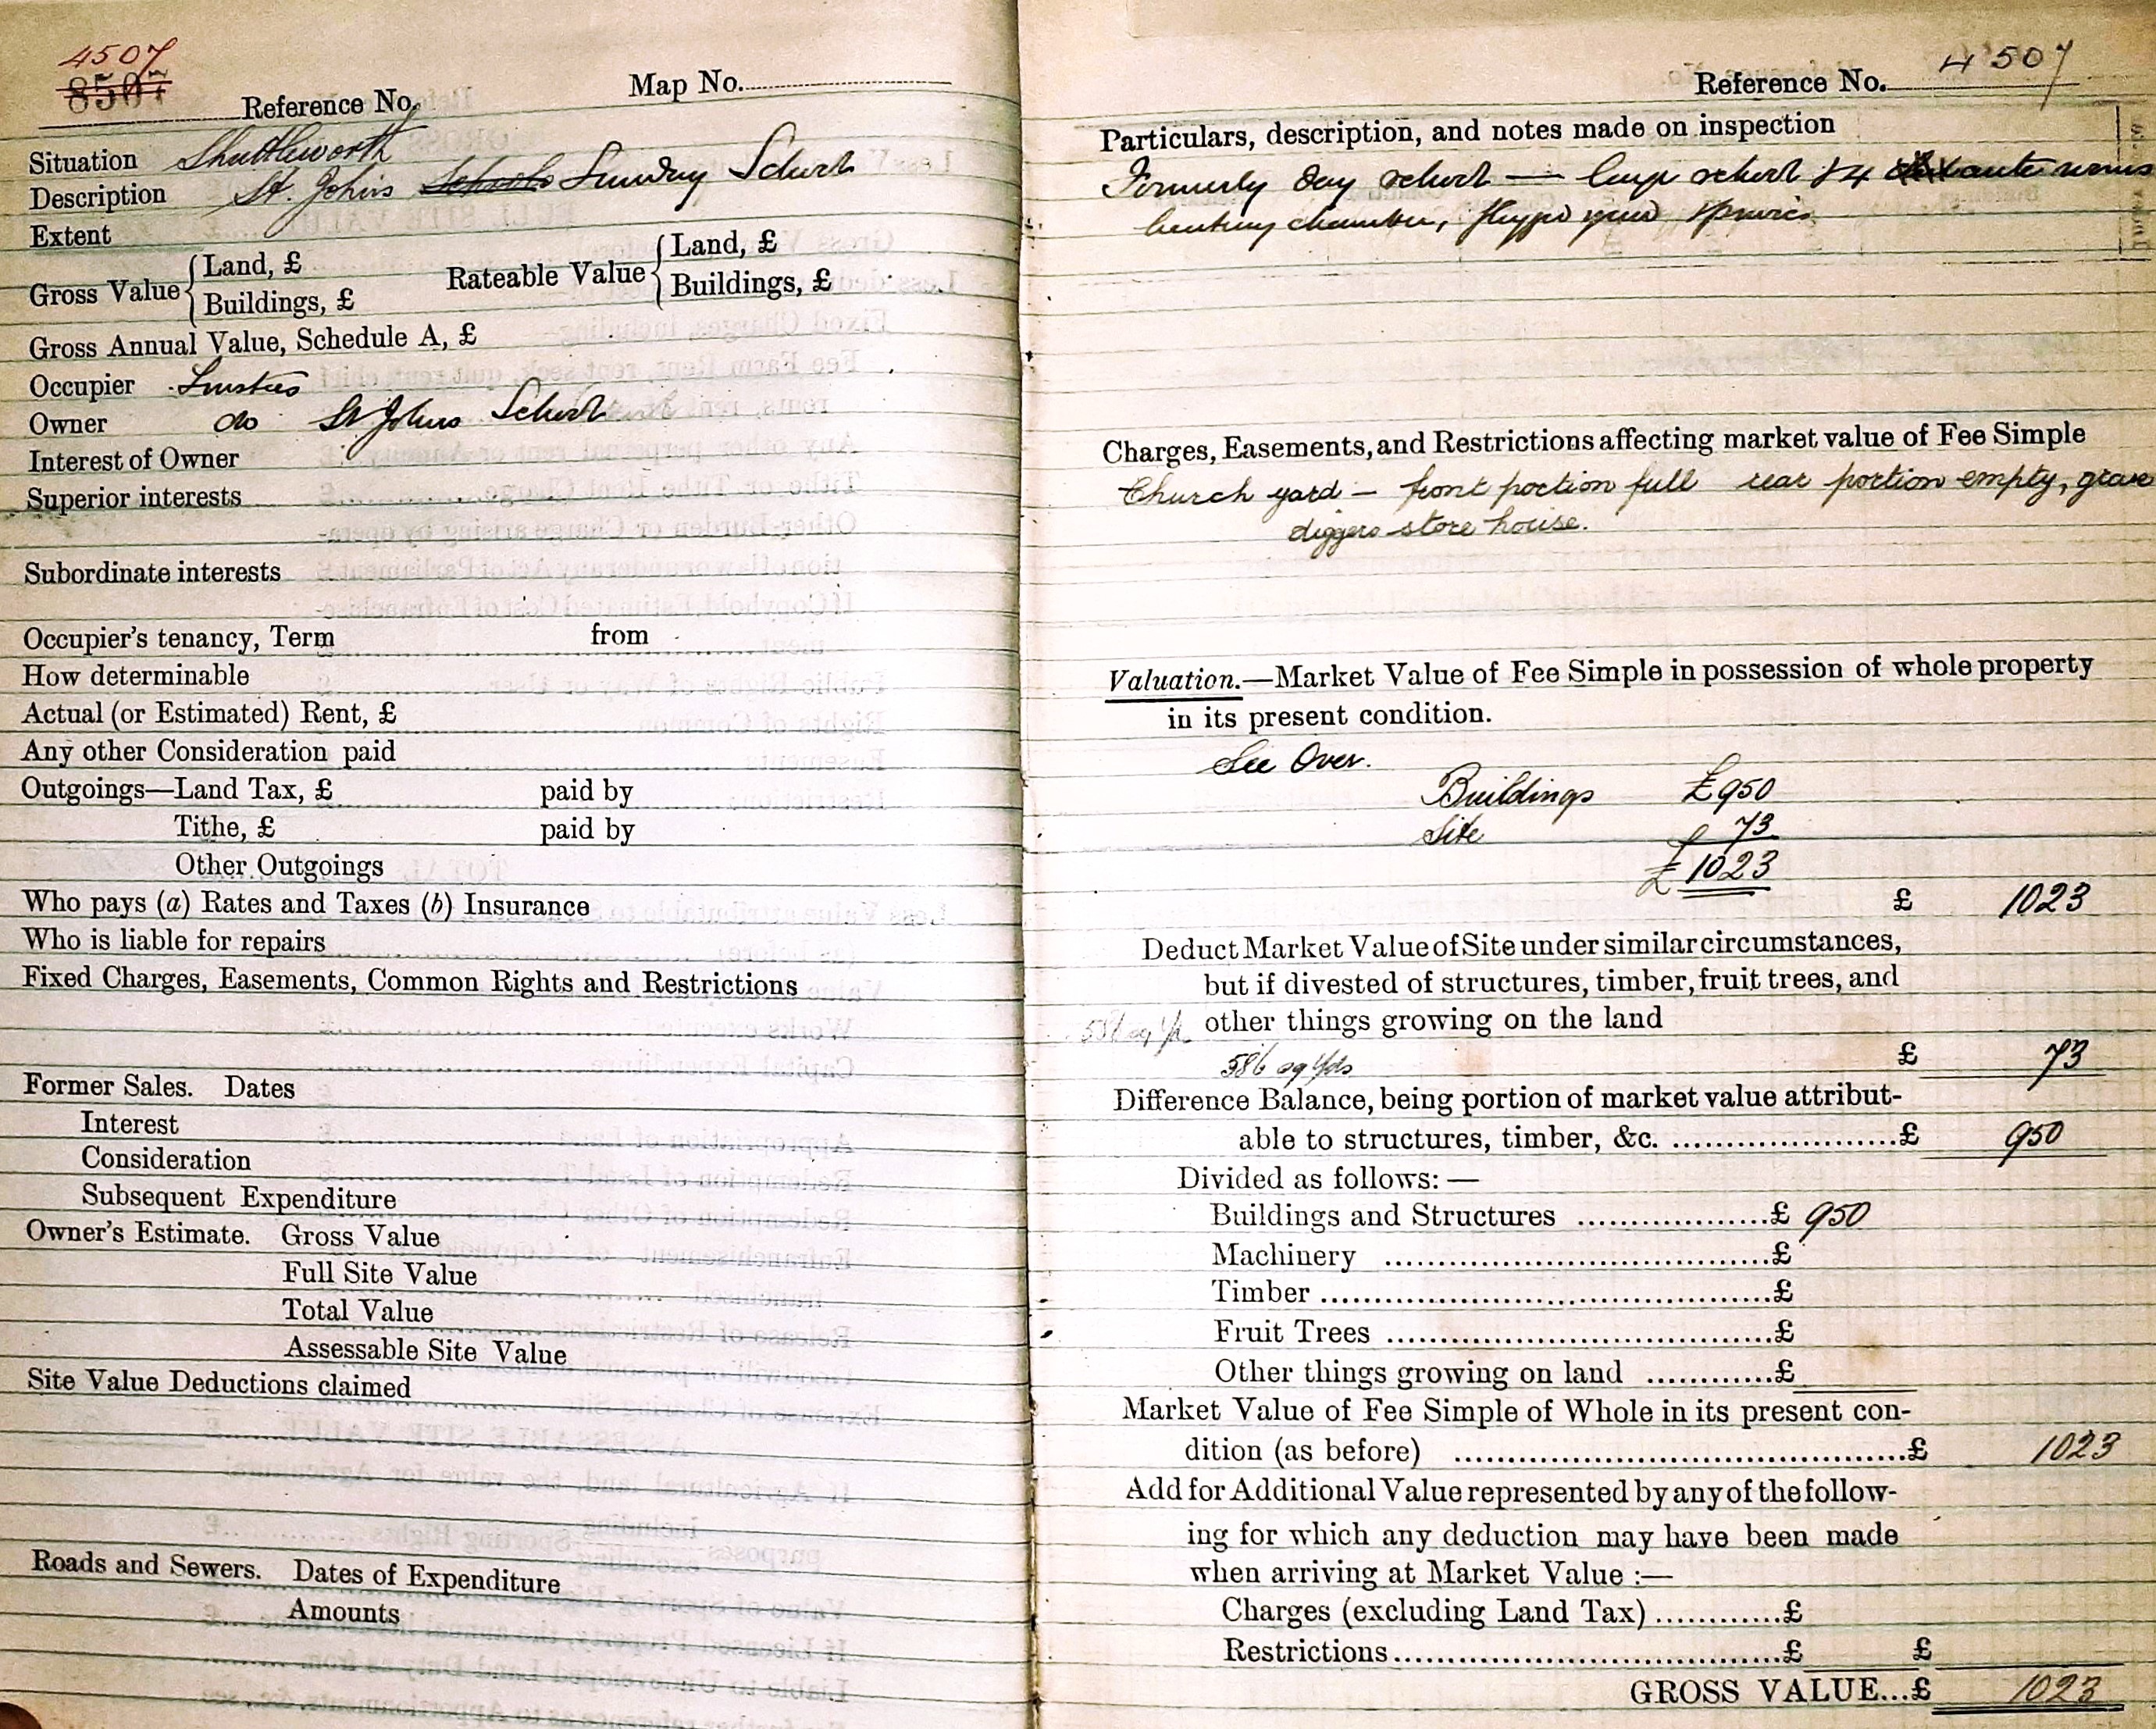 4507
8507
Reference No. Map No.
Situation Shuttleworth
Description St. Johns Schools Sunday School
Extent
Gross Value { Land, £ Rateable Value { Land, £
Buildings, £ Buildings, £
Gross Annual Value, Schedule A, £
Occupier Trustees
Owner do St Johns School
Interest of Owner
Superior interests
Subordinate interests
Occupier's tenancy, Term from
How determinable
Actual (or Estimated) Rent, £
Any other Consideration paid
Outgoings—Land Tax, £ paid by
Tithe, £ paid by
Other Outgoings
Who pays (a) Rates and Taxes (b) Insurance
Who is liable for repairs
Fixed Charges, Easements, Common Rights and Restrictions
Former Sales. Dates
Interest
Consideration
Subsequent Expenditure
Owner's Estimate. Gross Value
Full Site Value
Total Value
Assessable Site Value
Site Value Deductions claimed
Roads and Sewers. Dates of Expenditure
Amounts
Reference No. 4507
Particulars, description, and notes made on inspection
Formerly day school — large school & 4 ante rooms
heating chamber, flagged yard & privies
Charges, Easements, and Restrictions affecting market value of Fee Simple
Church yard — front portion full rear portion empty, grave
diggers store house.
Valuation.—Market Value of Fee Simple in possession of whole property
in its present condition.
See Over.
Buildings £950
Site £ 73
£ 1023
£ 1023
Deduct Market Value of Site under similar circumstances,
but if divested of structures, timber, fruit trees, and
586 sq yds other things growing on the land
586 sq yds £ 73
Difference Balance, being portion of market value attribut-
able to structures, timber, &c. ......................£ 950
Divided as follows: —
Buildings and Structures ..................£ 950
Machinery ....................................£
Timber ............................................£
Fruit Trees .......................................£
Other things growing on land ............£
Market Value of Fee Simple of Whole in its present con-
dition (as before) ..........................................£ 1023
Add for Additional Value represented by any of the follow-
ing for which any deduction may have been made
when arriving at Market Value :—
Charges (excluding Land Tax) ............£
Restrictions......................................£ £
GROSS VALUE...£ 1023